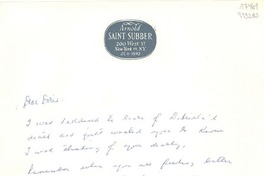 Arnold
SAINT SUBBER
200 West 57
New York 19, N.Y.
Dear Doris
I was saddened to hear of
death and just wanted you to know
I was thinking of you dearly.
Remember when you are feeling better